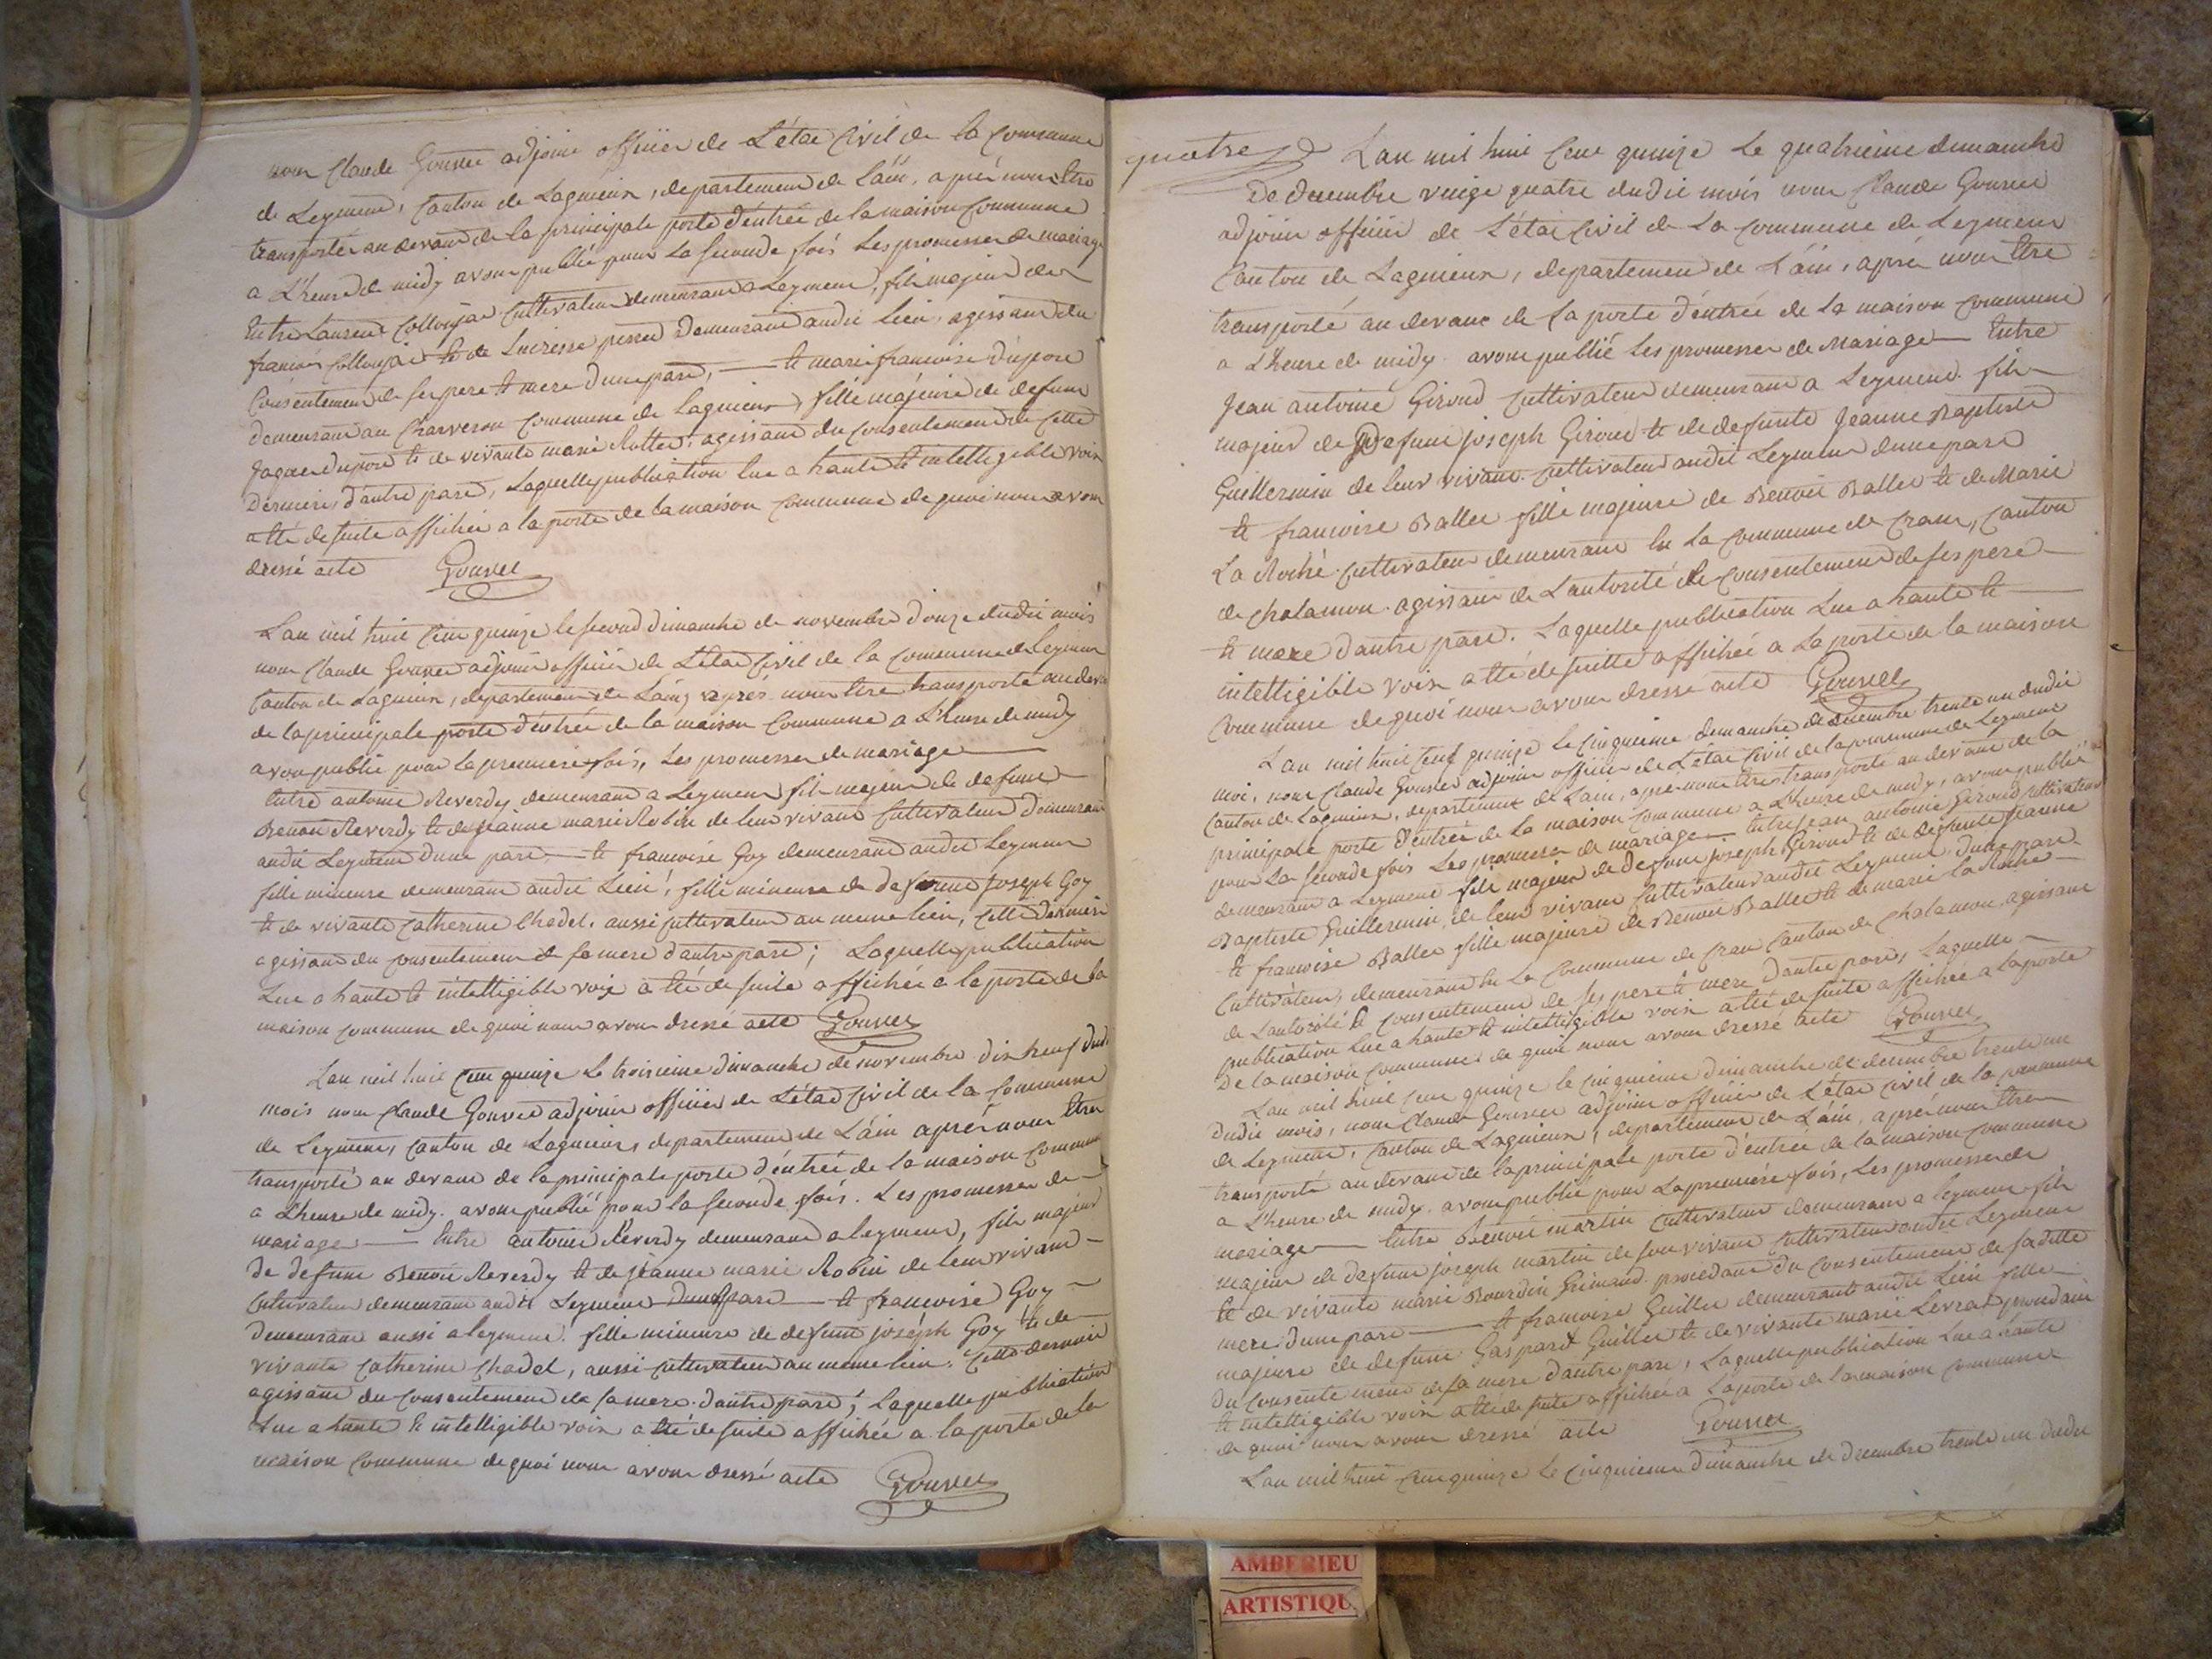 nous Claude Gouvee adjoint officier de L'état Civil de la Commune
de Leyment, Canton de Lagnieux, departement de L'ain, après nous Etre
transporté au devant de la principale porte d'entrée de la maison Commune
a L'heure de midy avons publié pour La seconde fois Les promesses de mariage
Entre Laurent Collonjat Cultivateur demeurant a Leyment, fils majeur de
francois Collonjat et de demeurant audit lieu, agissant du
Consentement de ses pere et mere d'une part, — et marie francoise dupore
demeurant au Charveron Commune de Lagnieux, fille majeure de defunt
Jaque dupore et de vivante marie agissant du Consentement de Cette
derniere, d'autre part, Laquelle publication lue a haute et intelligible voix
a Eté de suite affichée a la porte de la maison Commune de quoi nous avons
dressé acte Gouvee
L'an mil huit Cent quinze le second dimanche de novembre douze dudit mois
nous Claude Gouvee adjoint officier de L'état Civil de la Commune de Leyment
Canton de Lagnieux, departement de L'ain, après nous Etre transporté au devant
de la principale porte d'entrée de la maison Commune a L'heure de midy
avons publié pour la premiere fois, Les promesses de mariage —
Entre antoine Reverdy demeurant a Leyment fils majeur de defunt
Benoit Reverdy et de jeanne marie Robin de leur vivant Cultivateur demeurant
audit Leyment d'une part, — et francoise Goy demeurant audit Leyment
fille mineure demeurant audit Lieu, fille mineure de defunt Joseph Goy
et de vivante Catherine Chadel, aussi Cultivateur au meme lieu, Cette derniere
agissant du Consentement de sa mere d'autre part; Laquelle publication
Lue a haute et intelligible voix a Eté de suite affichée a la porte de la
maison Commune de quoi nous avons dressé acte Gouvee
L'an mil huit Cent quinze Le troisieme dimanche de novembre dix neuf dudit
mois nous Claude Gouvee adjoint officier de L'état Civil de la Commune
de Leyment, Canton de Lagnieux, departement de L'ain après nous Etre
transporté au devant de la principale porte d'entrée de la maison Commune
a L'heure de midy. avons publié pour la seconde fois. Les promesses de
mariage — Entre antoine Reverdy demeurant a Leyment, fils majeur
de defunt Benoit Reverdy et de jeanne marie Robin de leur vivant —
Cultivateur demeurant audit Leyment d'une part — et francoise Goy —
demeurant aussi a Leyment. fille mineure de defunt joseph Goy et de
vivante Catherine Chadel, aussi Cultivateur au meme lieu. Cette derniere
agissant du Consentement de sa mere d'autre part; Laquelle publication
Lue a haute et intelligible voix a Eté de suite affichée a la porte de la
maison Commune de quoi nous avons dressé acte Gouvee
quatre L'an mil huit Cent quinze Le quatrieme dimanche
De decembre vingt quatre dudit mois nous Claude Gouvee
adjoint officier de L'état Civil de La Commune de Leyment
Canton de Lagnieux, departement de L'ain, après nous Etre
transporté au devant de La porte d'entrée de la maison Commune
a L'heure de midy. avons publié Les promesses de Mariage — Entre
Jean antoine Giroud Cultivateur demeurant a Leyment. fils
majeur de Defunt joseph Giroud et de defunte Jeanne Baptiste
Guillermin de leur vivant Cultivateur audit Leyment d'une part
et francoise Ballet fille majeure de Benoit Ballet et de Marie
La Roche Cultivateur demeurant En La Commune de Cran, Canton
de Chalamon agissant de L'autorité et Consentement de ses pere
et mere d'autre part. Laquelle publication Lue a haute et —
intelligible voix a Eté de suitte affichée a La porte de la maison
Commune de quoi nous avons dressé acte Gouvee
L'an mil huit Cent quinze le Cinquieme dimanche de decembre trente un dudit
moi, nous Claude Gouvee adjoint officier de L'état Civil de la commune de Leyment
Canton de Lagnieux, departement de L'ain, après nous Etre transporté au devant de la
principale porte d'entrée de la maison Commune a L'heure de midy, avons publié
pour La seconde fois Les promesses de mariage — Entre jean antoine Giroud Cultivateur
demeurant a Leyment fils majeur de Defunt joseph Giroud et de defunte jeanne
Baptiste Guillermin, de leur vivant Cultivateur audit Leyment. d'une part.
et francoise Ballet fille majeure de Benoit Ballet et de marie la Roche —
Cultivateur, demeurant En La Commune de Cran Canton de Chalamon agissant
de L'autorité et Consentement de ses pere et mere d'autre part, Laquelle —
publication Lue a haute et intelligible voix a Eté de suite affichée a La porte
De la maison Commune de quoi nous avons dressé acte Gouvee
L'an mil huit Cent quinze le Cinquieme dimanche de decembre trente un
dudit mois, nous Claude Gouvee adjoint officier de L'état Civil de la Commune
de Leyment, Canton de Lagnieux, departement de L'ain, après nous Etre
transporté au devant de la principale porte d'entrée de la maison Commune
a L'heure de midy. avons publié pour La premiere fois, Les promesses de
mariage — Entre Benoit martin Cultivateur demeurant a Leyment fils
majeur de defunt joseph martin de son vivant Cultivateur audit Leyment
et de vivante marie Bourdin Grimaud procedant du Consentement de sa ditte
mere d'une part — et francoise Guillet demeurant audit Lieu fille
majeure de defunt Gaspard Guillet et de vivante marie Levrat procedant
du Consentement de sa mere d'autre part, Laquelle publication Lue a haute
et intelligible voix a Eté de suite affichée a La porte de la maison Commune
de quoi nous avons dressé acte Gouvee
L'an mil huit Cent quinze le Cinquieme dimanche de decembre trente un dudit
AMBERIEU
ARTISTIQU